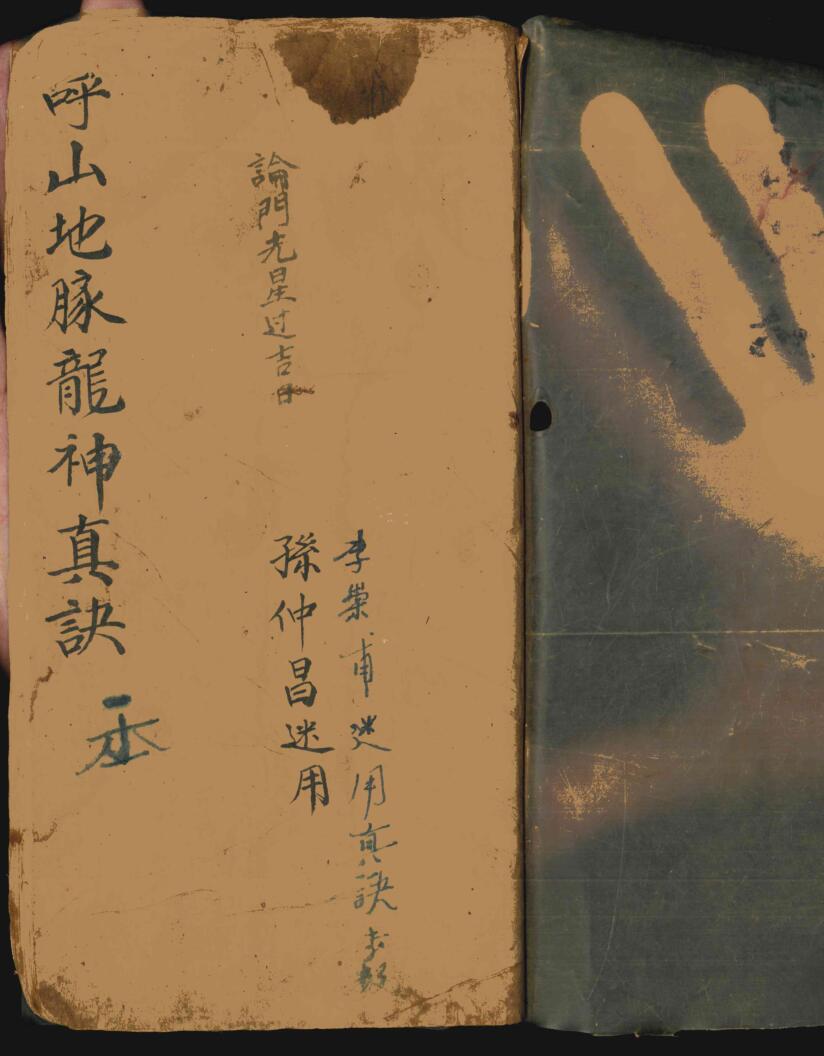 李榮甫迷用真訣
孫仲昌迷用
論門光星过吉日
呼山地豚龍神真訣
一本